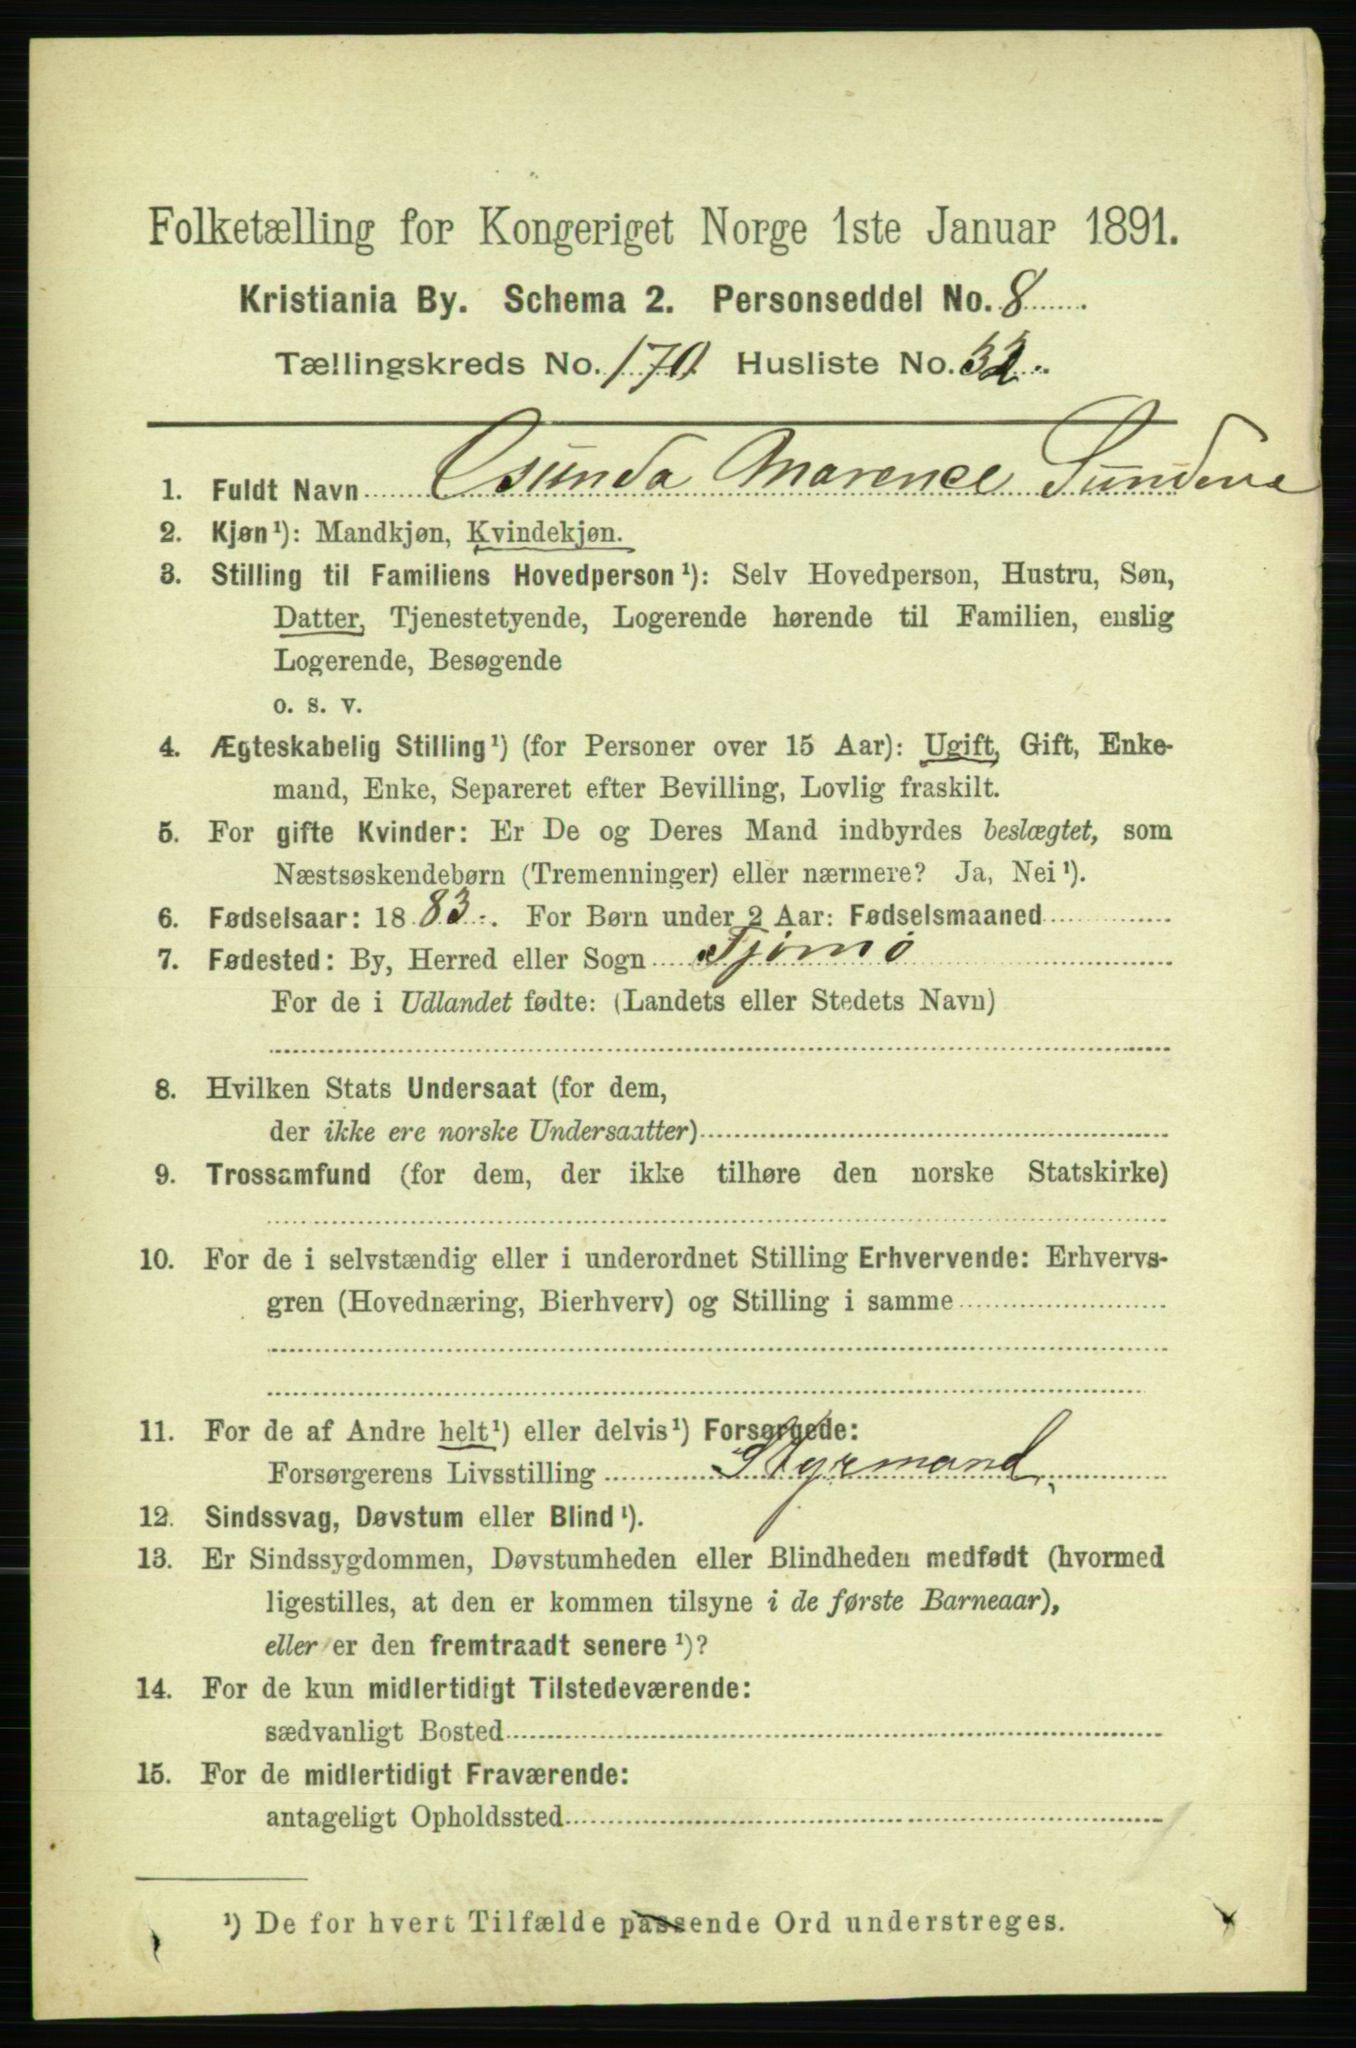 Folketælling for Kongeriget Norge 1ste Januar 1891.
Kristiania By. Schema 2. Personseddel No. 8
Tællingskreds No. 170. Husliste No. 32.
1. Fuldt Navn Osunda Marence Sundene
2. Kjøn¹): Mandkjøn, Kvindekjøn.
3. Stilling til Familiens Hovedperson¹): Selv Hovedperson, Hustru, Søn,
Datter, Tjenestetyende, Logerende hørende til Familien, enslig
Logerende, Besøgende
o. s. v.
4. Ægteskabelig Stilling¹) (for Personer over 15 Aar): Ugift, Gift, Enke-
mand, Enke, Separeret efter Bevilling, Lovlig fraskilt.
5. For gifte Kvinder: Er De og Deres Mand indbyrdes beslægtet, som
Næstsøskendebørn (Tremenninger) eller nærmere? Ja, Nei¹).
6. Fødselsaar: 1883. For Børn under 2 Aar: Fødselsmaaned
7. Fødested: By, Herred eller Sogn Tjømø
For de i Udlandet fødte: (Landets eller Stedets Navn)
8. Hvilken Stats Undersaat (for dem,
der ikke ere norske Undersaatter)
9. Trossamfund (for dem, der ikke tilhøre den norske Statskirke)
10. For de i selvstændig eller i underordnet Stilling Erhvervende: Erhvervs-
gren (Hovednæring, Bierhverv) og Stilling i samme
11. For de af Andre helt¹) eller delvis¹) Forsørgede:
Forsørgerens Livsstilling Styrmand.
12. Sindssvag, Døvstum eller Blind¹).
13. Er Sindssygdommen, Døvstumheden eller Blindheden medfødt (hvormed
ligestilles, at den er kommen tilsyne i de første Barneaar),
eller er den fremtraadt senere¹)?
14. For de kun midlertidigt Tilstedeværende:
sædvanligt Bosted
15. For de midlertidigt Fraværende:
antageligt Opholdssted
¹) De for hvert Tilfælde passende Ord understreges.